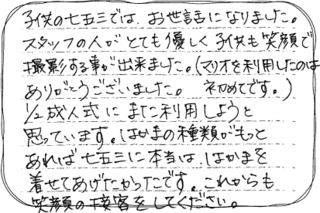 子供の七五三では、お世話になりました。
スタッフの人がとても優しく子供も笑顔で
撮影する事が出来ました。(マリオを利用したのは
ありがとうございました。 初めてです。)
1/2成人式にまた利用しようと
思っています。はかまの種類がもっと
あれば七五三に本当は、はかまを
着せてあげたかったです。これからも
笑顔の接客をしてください。